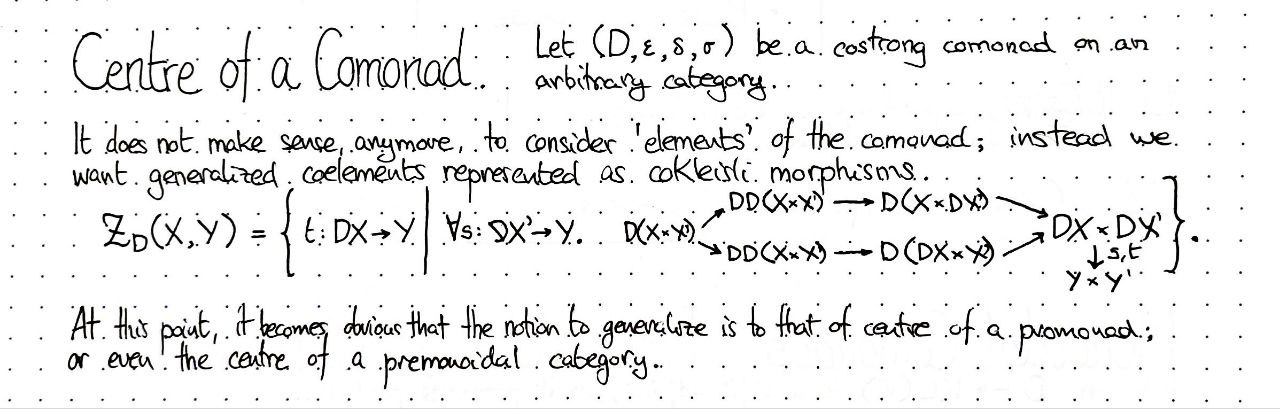 Centre of a Comonad. Let (D, ε, δ, σ) be a costrong comonad on an
arbitrary category.
It does not make sense, anymore, to consider 'elements' of the comonad; instead we
want generalized coelements represented as cokleisli morphisms.
DD(X×X') → D(X×DX')
Z_D(X,Y) = { t: DX→Y | ∀s: DX'→Y. D(X×X') DX × DX' }.
DD(X×X') → D(DX×X') ↓ s,t
Y × Y'
At this point, it becomes obvious that the notion to generalize is to that of centre of a promonad;
or even the centre of a premonoidal category.